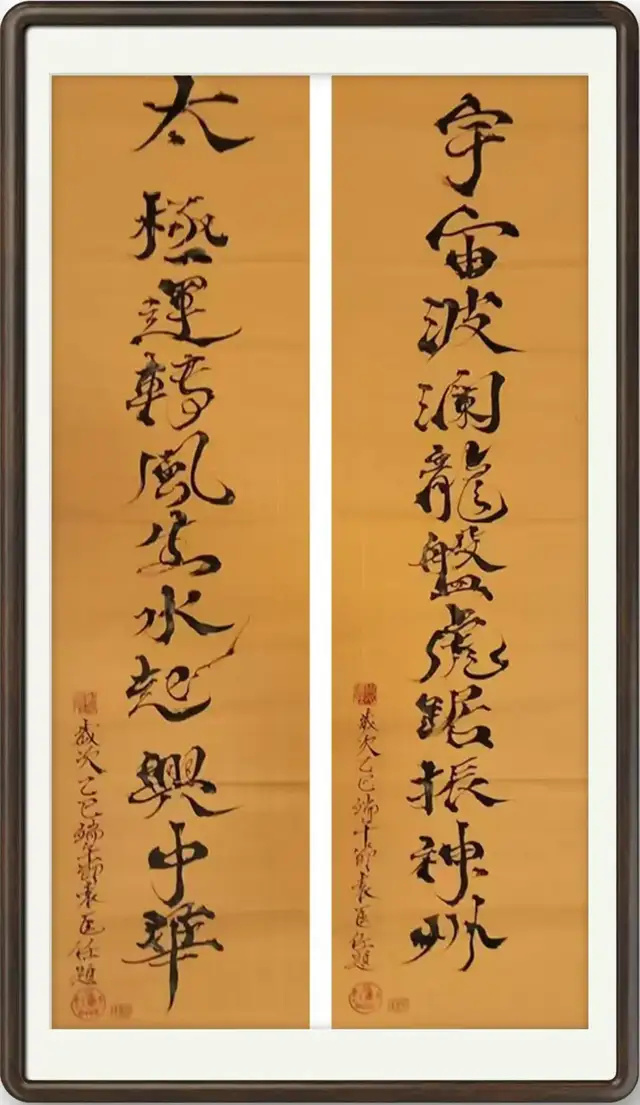 宇宙波瀾龍盤虎踞振神州
歲次乙巳端午節袁題
太極運轉風生水起興中華
歲次乙巳端午節袁題